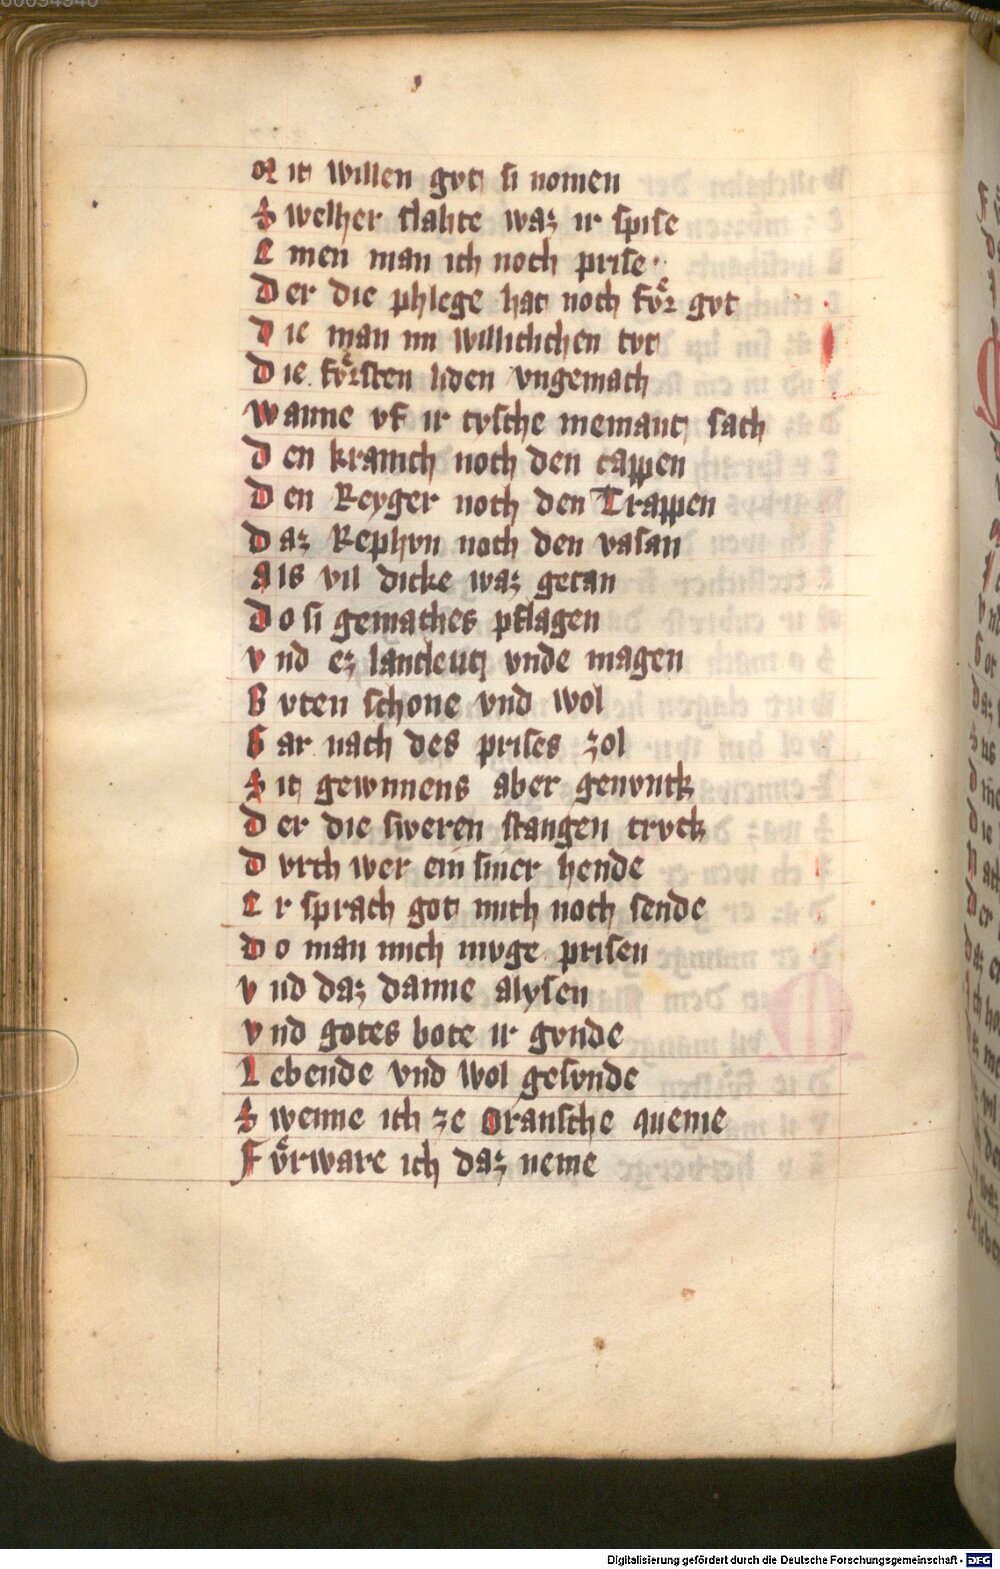 Mit willen gvt si nomen
Swelher slahte waz ir spise
Emen man ich noch prise
Der die phlege hat noch fv̊r gvt
Die man im willichlichen tvt
Die fv̊rsten liden vngemach
Wanne vf ir tvsche niemant sach
Den kranich noch den cappen
Den Reyger noch den Trappen
Daz Rephvn noch den vasan
Als vil dicke waz getan
Do si gemaches pflagen
Vnd ez lantleut vnde magen
Bvten schone vnd wol
Gar nach des prises zol
Sit gewnnens aber genvnck
Der die sweren stangen trvck
Dvrch wer ein siner hende
Er sprach got mich noch sende
Do man mich mvge prisen
Vnd daz danne alysen
Vnd gotes bote ir gvnde
Lebende vnd wol gesvnde
Swenne ich ze Oransche queme
Fv̊rware ich daz neme
Digitalisierung gefördert durch die Deutsche Forschungsgemeinschaft - DFG